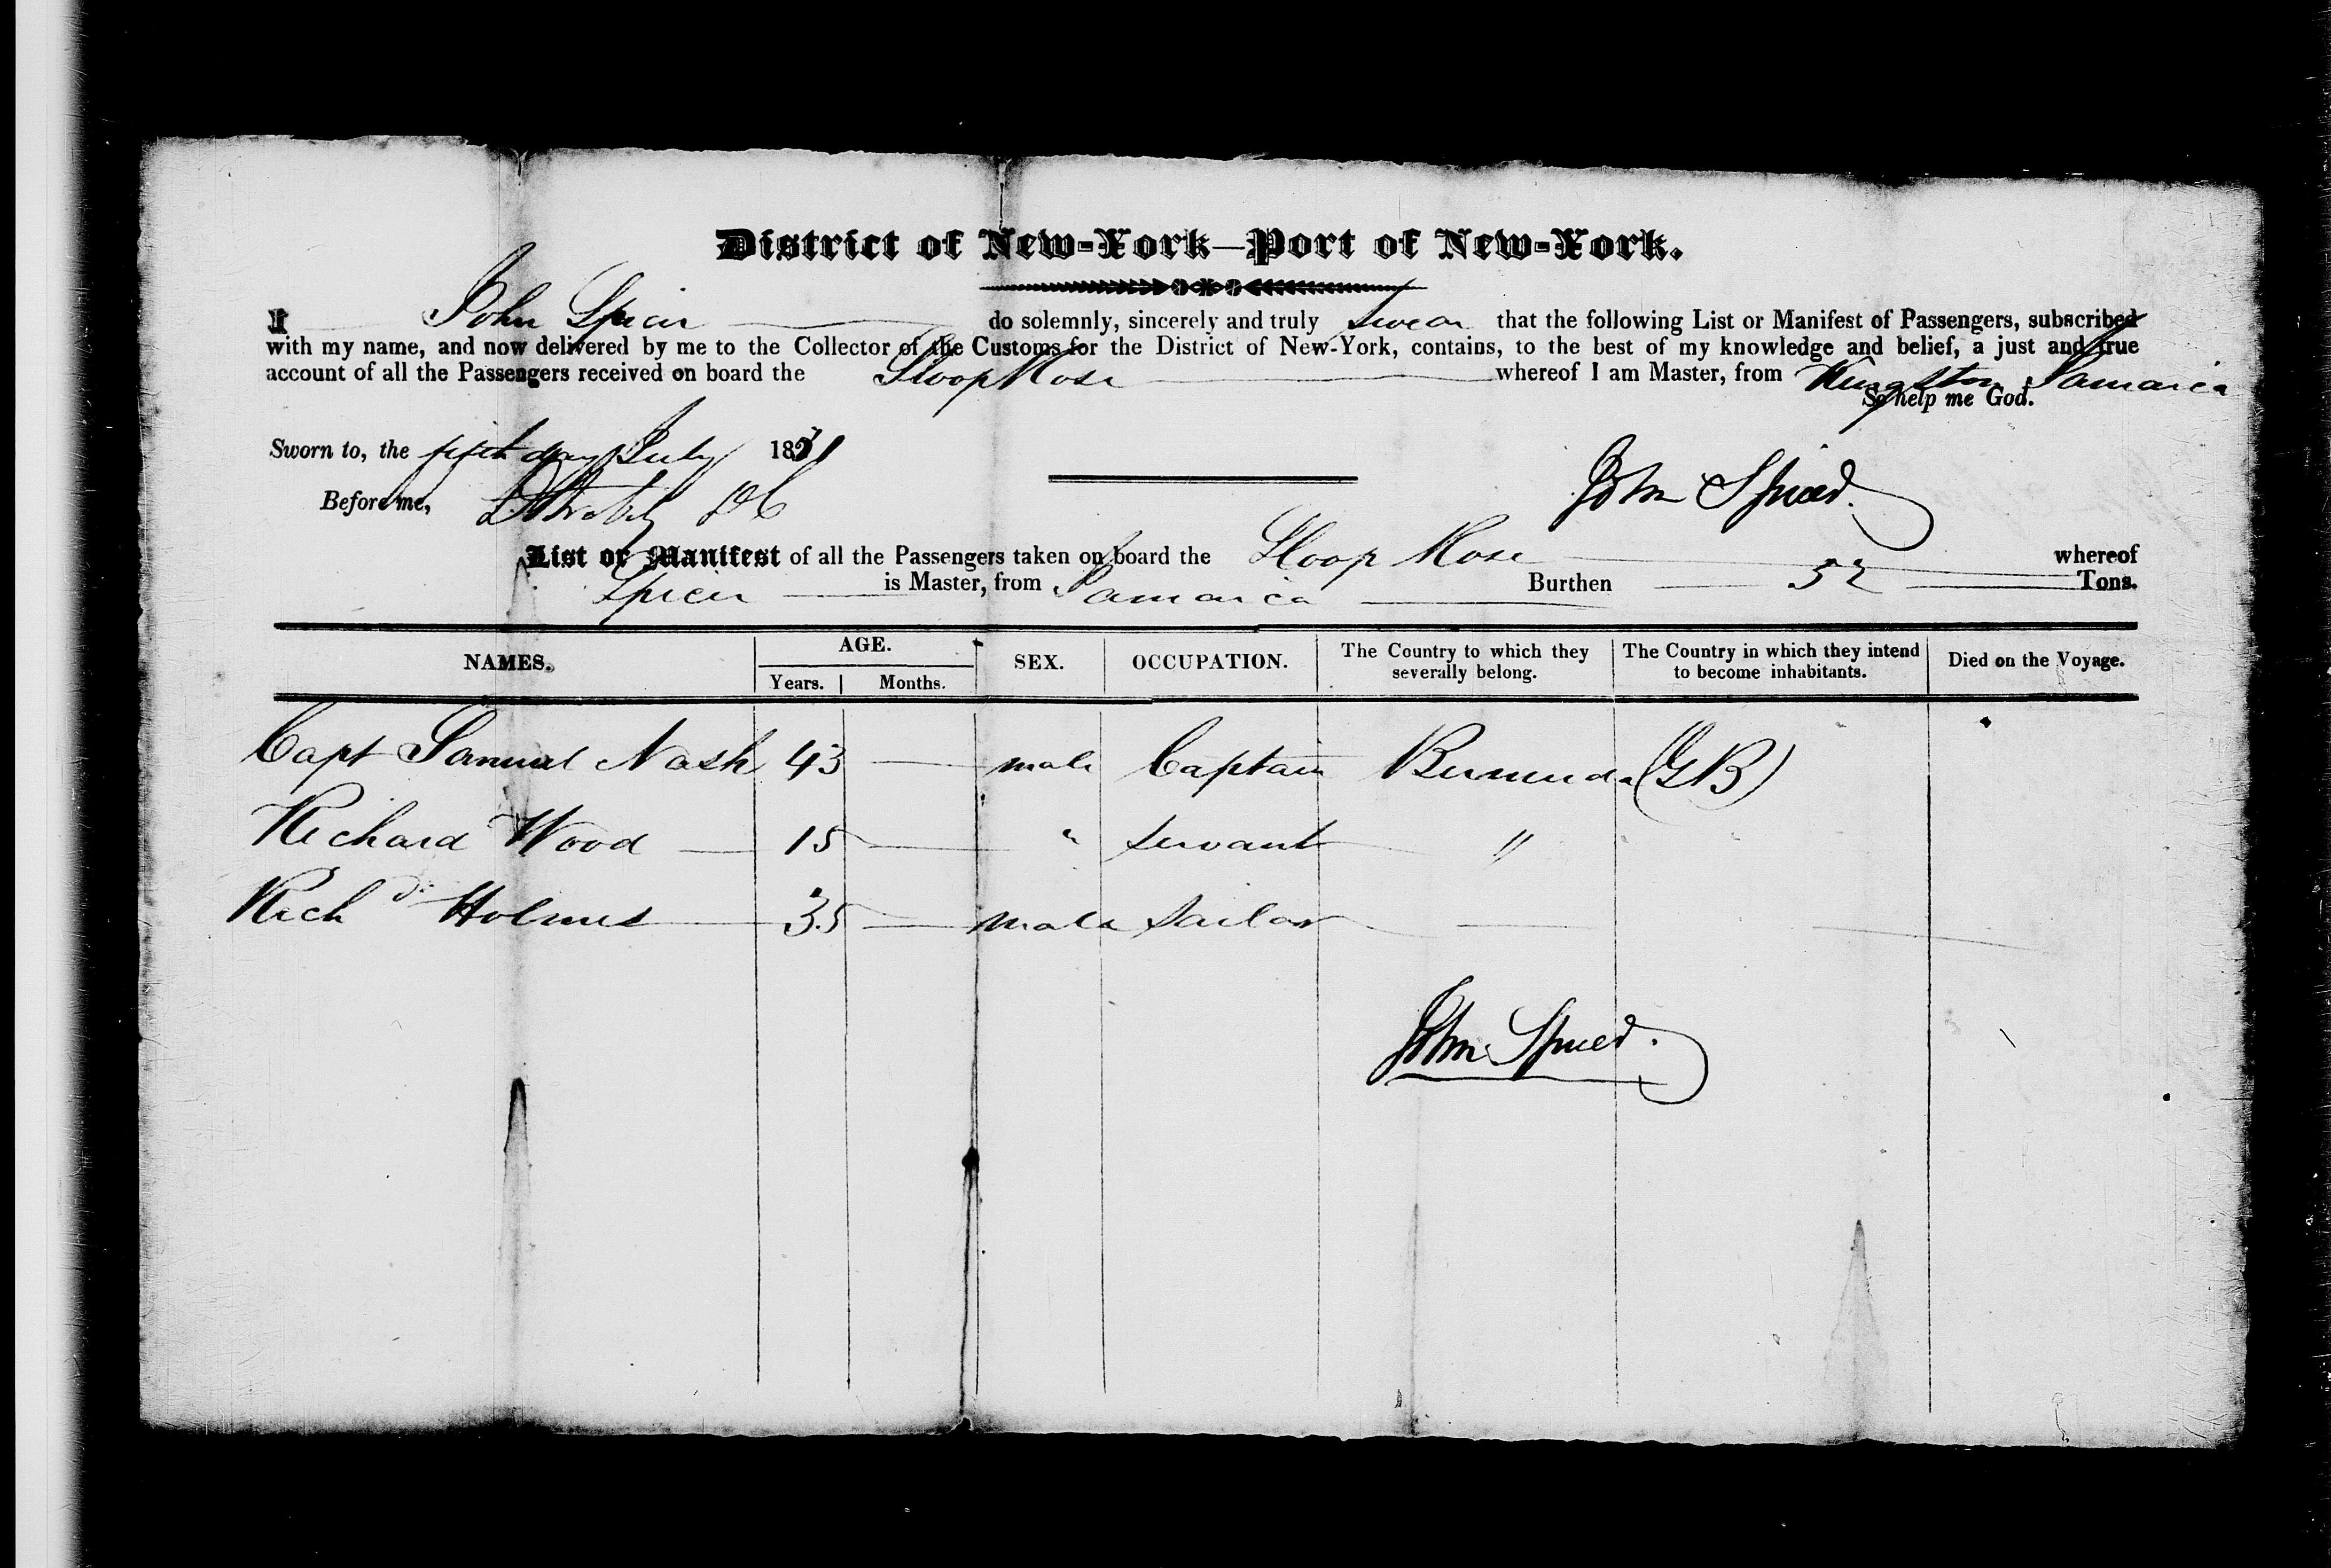 District of New-York—Port of New-York.
I John Spicer do solemnly, sincerely and truly swear that the following List or Manifest of Passengers, subscribed
with my name, and now delivered by me to the Collector of the Customs for the District of New-York, contains, to the best of my knowledge and belief, a just and true
account of all the Passengers received on board the Sloop Rose whereof I am Master, from Kingston Jamaica
So help me God.
Sworn to, the fifth day July 1831
Before me,
John
List or Manifest of all the Passengers taken on board the Sloop Rose whereof
Spicer is Master, from Jamaica Burthen 52 Tons.
NAMES. AGE. SEX. OCCUPATION. The Country to which they severally belong. The Country in which they intend to become inhabitants. Died on the Voyage.
Years. Months.
Capt Samuel Nash 43 — male Captain Bermuda (GB)
Richard Wood — 15 — " servant — "
Richd Holmes — 35 — male sailor —
John